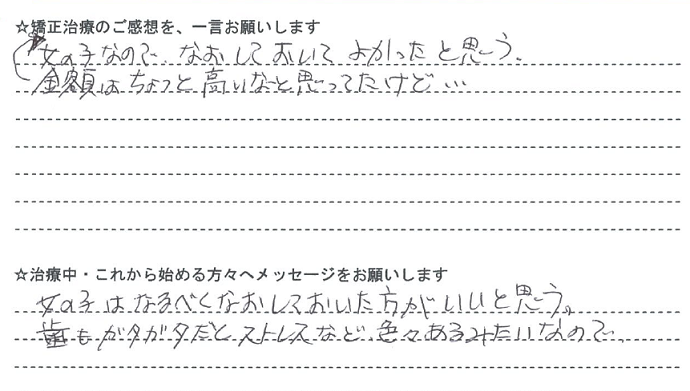 ☆矯正治療のご感想を、一言お願いします
女の子なので、なおしておいて よかったと思う。
金額はちょっと高いなと思ってたけど…
☆治療中・これから始める方々へメッセージをお願いします
女の子はなるべくなおしておいた方がいいと思う。
歯もガタガタだとストレスなど、色々あるみたいなので、